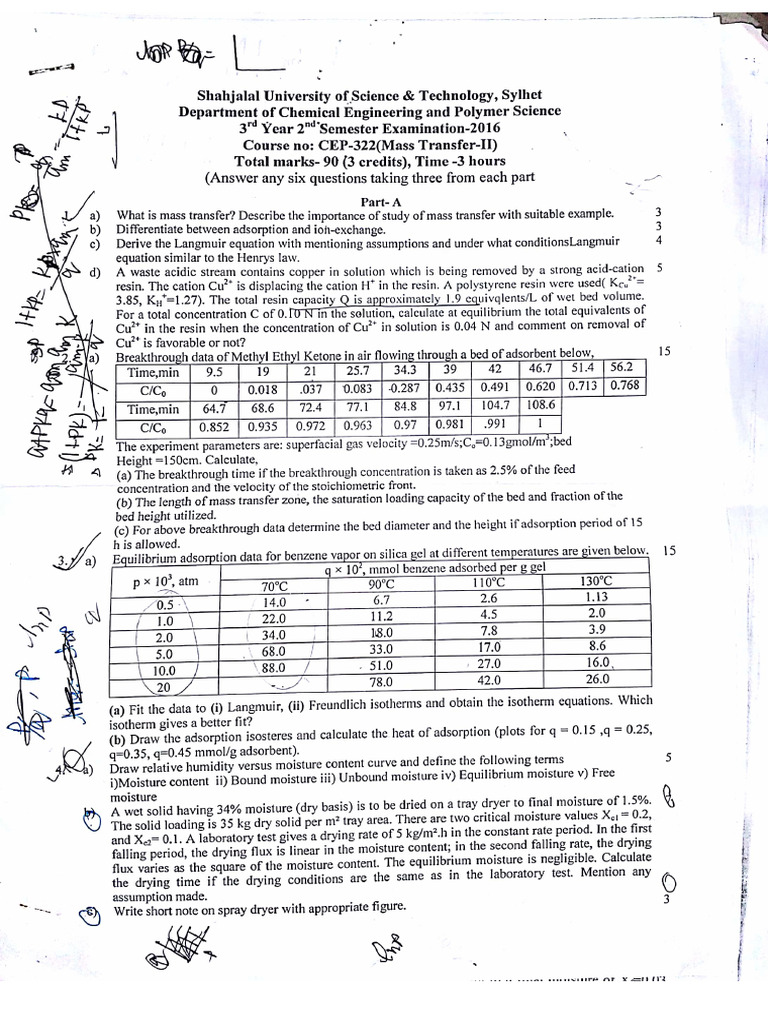 Shahjalal University of Science & Technology, Sylhet
Department of Chemical Engineering and Polymer Science
3rd Year 2nd Semester Examination-2016
Course no: CEP-322(Mass Transfer-II)
Total marks- 90 (3 credits), Time -3 hours
(Answer any six questions taking three from each part
Part- A
a) What is mass transfer? Describe the importance of study of mass transfer with suitable example. 3
b) Differentiate between adsorption and ion-exchange. 3
c) Derive the Langmuir equation with mentioning assumptions and under what conditionsLangmuir 4
equation similar to the Henrys law.
d) A waste acidic stream contains copper in solution which is being removed by a strong acid-cation 5
resin. The cation Cu2+ is displacing the cation H+ in the resin. A polystyrene resin were used( KCu2+=
3.85, KH+=1.27). The total resin capacity Q is approximately 1.9 equivqlents/L of wet bed volume.
For a total concentration C of 0.10 N in the solution, calculate at equilibrium the total equivalents of
Cu2+ in the resin when the concentration of Cu2+ in solution is 0.04 N and comment on removal of
Cu2+ is favorable or not?
a) Breakthrough data of Methyl Ethyl Ketone in air flowing through a bed of adsorbent below, 15
Time,min 9.5 19 21 25.7 34.3 39 42 46.7 51.4 56.2
C/C0 0 0.018 .037 0.083 0.287 0.435 0.491 0.620 0.713 0.768
Time,min 64.7 68.6 72.4 77.1 84.8 97.1 104.7 108.6
C/C0 0.852 0.935 0.972 0.963 0.97 0.981 .991 1
The experiment parameters are: superfacial gas velocity =0.25m/s;Co=0.13gmol/m3;bed
Height =150cm. Calculate,
(a) The breakthrough time if the breakthrough concentration is taken as 2.5% of the feed
concentration and the velocity of the stoichiometric front.
(b) The length of mass transfer zone, the saturation loading capacity of the bed and fraction of the
bed height utilized.
(c) For above breakthrough data determine the bed diameter and the height if adsorption period of 15
h is allowed.
3. a) Equilibrium adsorption data for benzene vapor on silica gel at different temperatures are given below. 15
p × 103, atm q × 102, mmol benzene adsorbed per g gel
70oC 90oC 110oC 130oC
0.5 14.0 6.7 2.6 1.13
1.0 22.0 11.2 4.5 2.0
2.0 34.0 18.0 7.8 3.9
5.0 68.0 33.0 17.0 8.6
10.0 88.0 51.0 27.0 16.0
20 78.0 42.0 26.0
(a) Fit the data to (i) Langmuir, (ii) Freundlich isotherms and obtain the isotherm equations. Which
isotherm gives a better fit?
(b) Draw the adsorption isosteres and calculate the heat of adsorption (plots for q = 0.15 ,q = 0.25,
q=0.35, q=0.45 mmol/g adsorbent).
4. a) Draw relative humidity versus moisture content curve and define the following terms 5
i)Moisture content ii) Bound moisture iii) Unbound moisture iv) Equilibrium moisture v) Free
moisture
A wet solid having 34% moisture (dry basis) is to be dried on a tray dryer to final moisture of 1.5%.
The solid loading is 35 kg dry solid per m2 tray area. There are two critical moisture values Xc1 = 0.2,
and Xc2= 0.1. A laboratory test gives a drying rate of 5 kg/m2.h in the constant rate period. In the first
falling period, the drying flux is linear in the moisture content; in the second falling rate, the drying
flux varies as the square of the moisture content. The equilibrium moisture is negligible. Calculate
the drying time if the drying conditions are the same as in the laboratory test. Mention any
assumption made.
Write short note on spray dryer with appropriate figure. 3